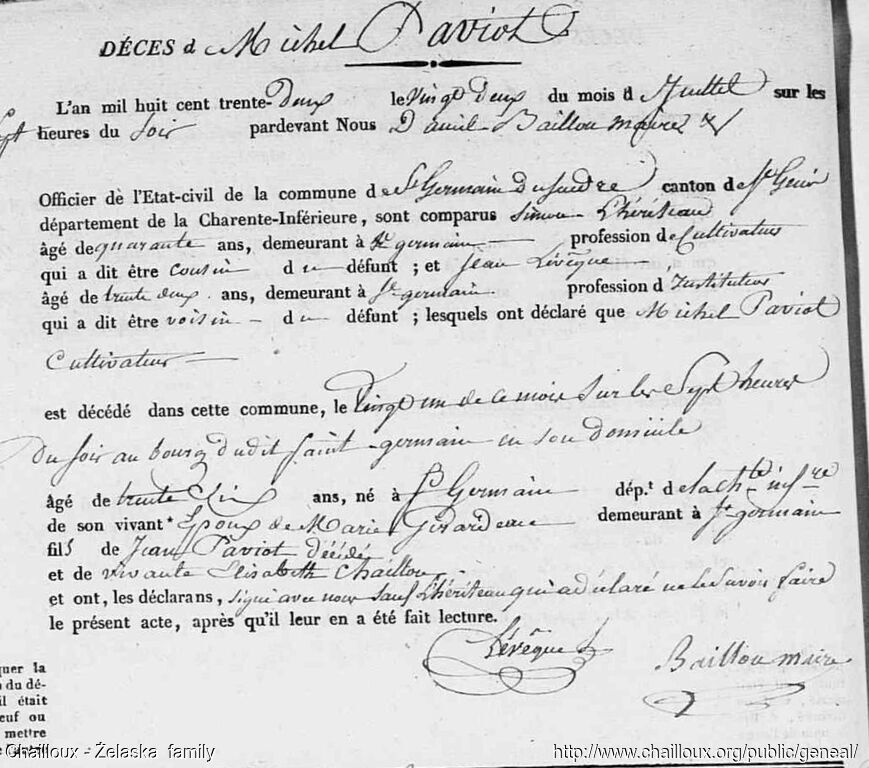 DÉCES d Michel Paviot
L'an mil huit cent trente-Deux le Vingt Deux du mois d Juillet sur les
Sept heures du Soir pardevant Nous Baillou maire
Officier de l'Etat-civil de la commune de St Germain Du seudre canton de St Genis
département de la Charente-Inférieure, sont comparus Simon Lhériteau
âgé de quarante ans, demeurant à St germain profession de Cultivateur
qui a dit être cousin du défunt ; et Jean Lévêque
âgé de trente deux ans, demeurant à St germain profession d'Instituteur
qui a dit être voisin du défunt ; lesquels ont déclaré que Michel Paviot
Cultivateur
est décédé dans cette commune, le Vingt un de ce mois Sur les Sept heures
Du Soir au bourg dudit Saint germain en son Domicile
âgé de trente ans, né à St Germain dép.t de la Chte infre
de son vivant* Epoux de Marie Girardeau demeurant à St germain
fils de Jean Paviot décédé
et de vivante Elisabeth Chaillou
et ont, les déclarans, signé avec nous sauf Lhériteau qui a déclaré ne le Savoir faire
le présent acte, après qu'il leur en a été fait lecture.
Lévêque
Baillou maire
quer la
du dé-
il était
euf ou
mettre
Chailloux - Żelaska family
http://www.chailloux.org/public/geneal/